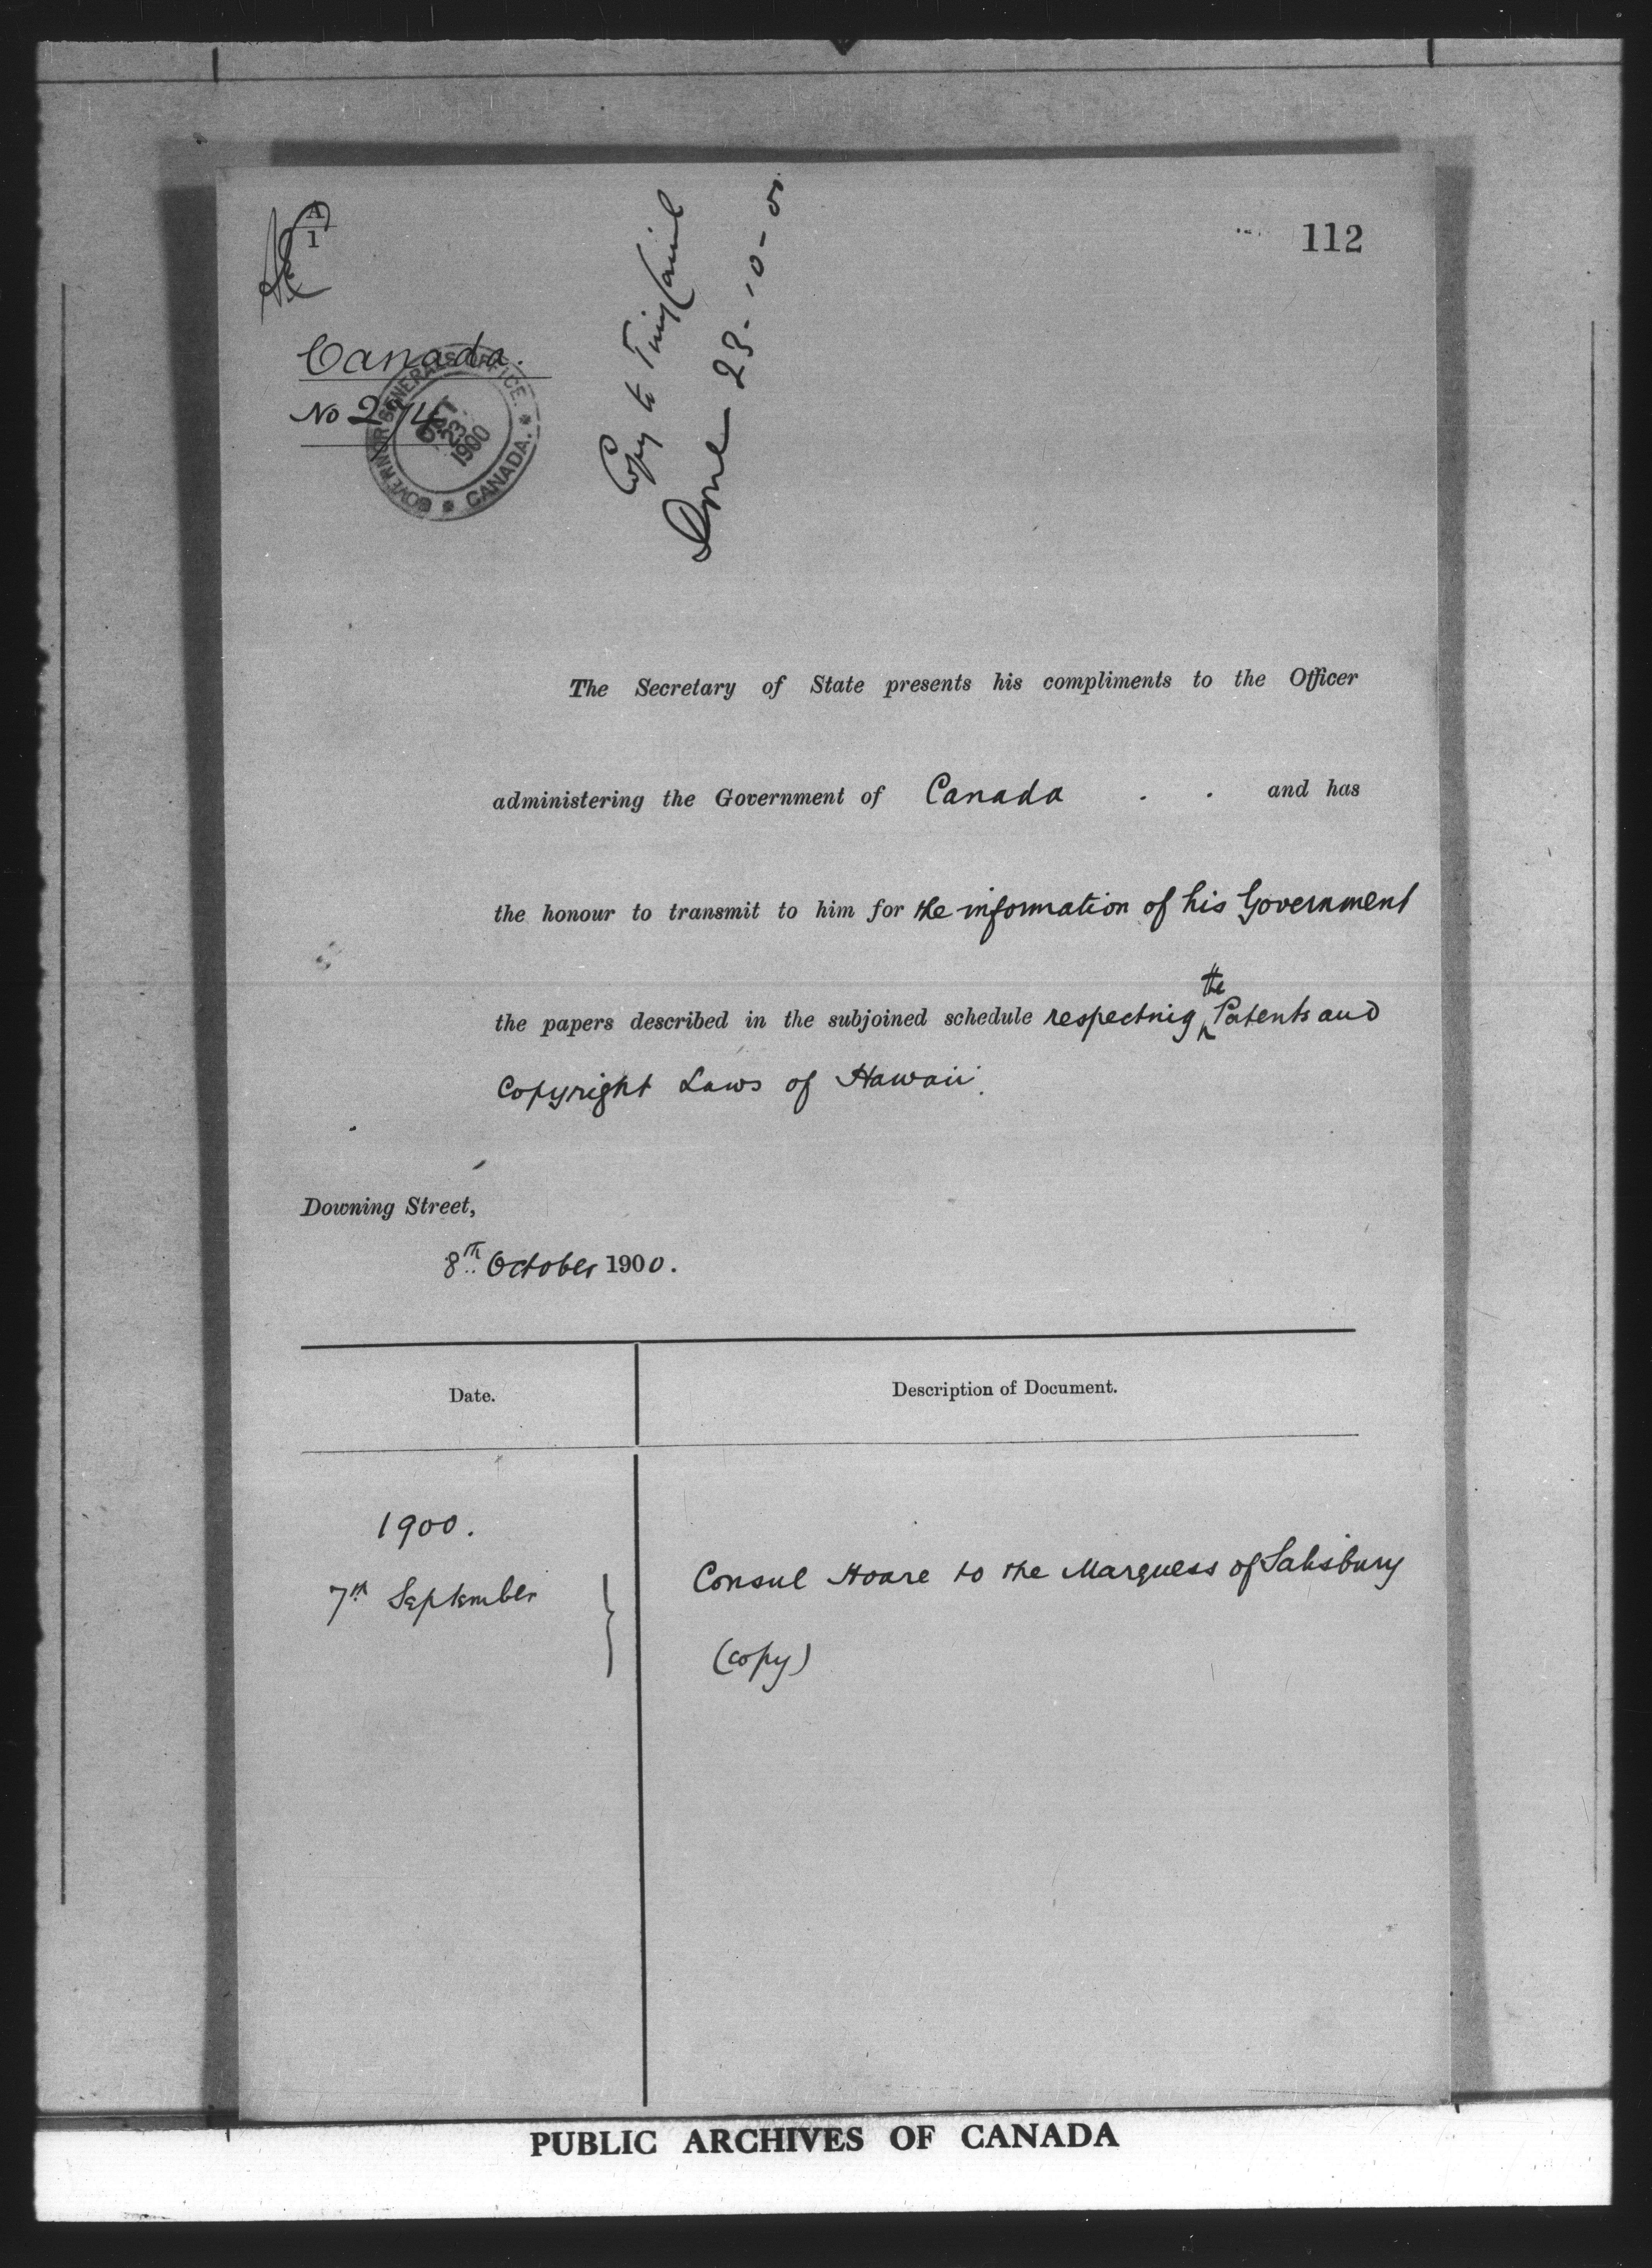 A
1
112
Canada.
No 274
GOVERNOR GENERAL'S OFFICE.
CANADA.
OCT
23
1900
Copy to Privy Council
Done 23-10-00
The Secretary of State presents his compliments to the Officer
administering the Government of Canada . . and has
the honour to transmit to him for the information of his Government
the papers described in the subjoined schedule respecting the Patents and
Copyright Laws of Hawaii.
Downing Street,
8th October 1900.
Date.
Description of Document.
1900.
7th September
Consul Hoare to the Marquess of Salisbury
(copy)
PUBLIC ARCHIVES OF CANADA